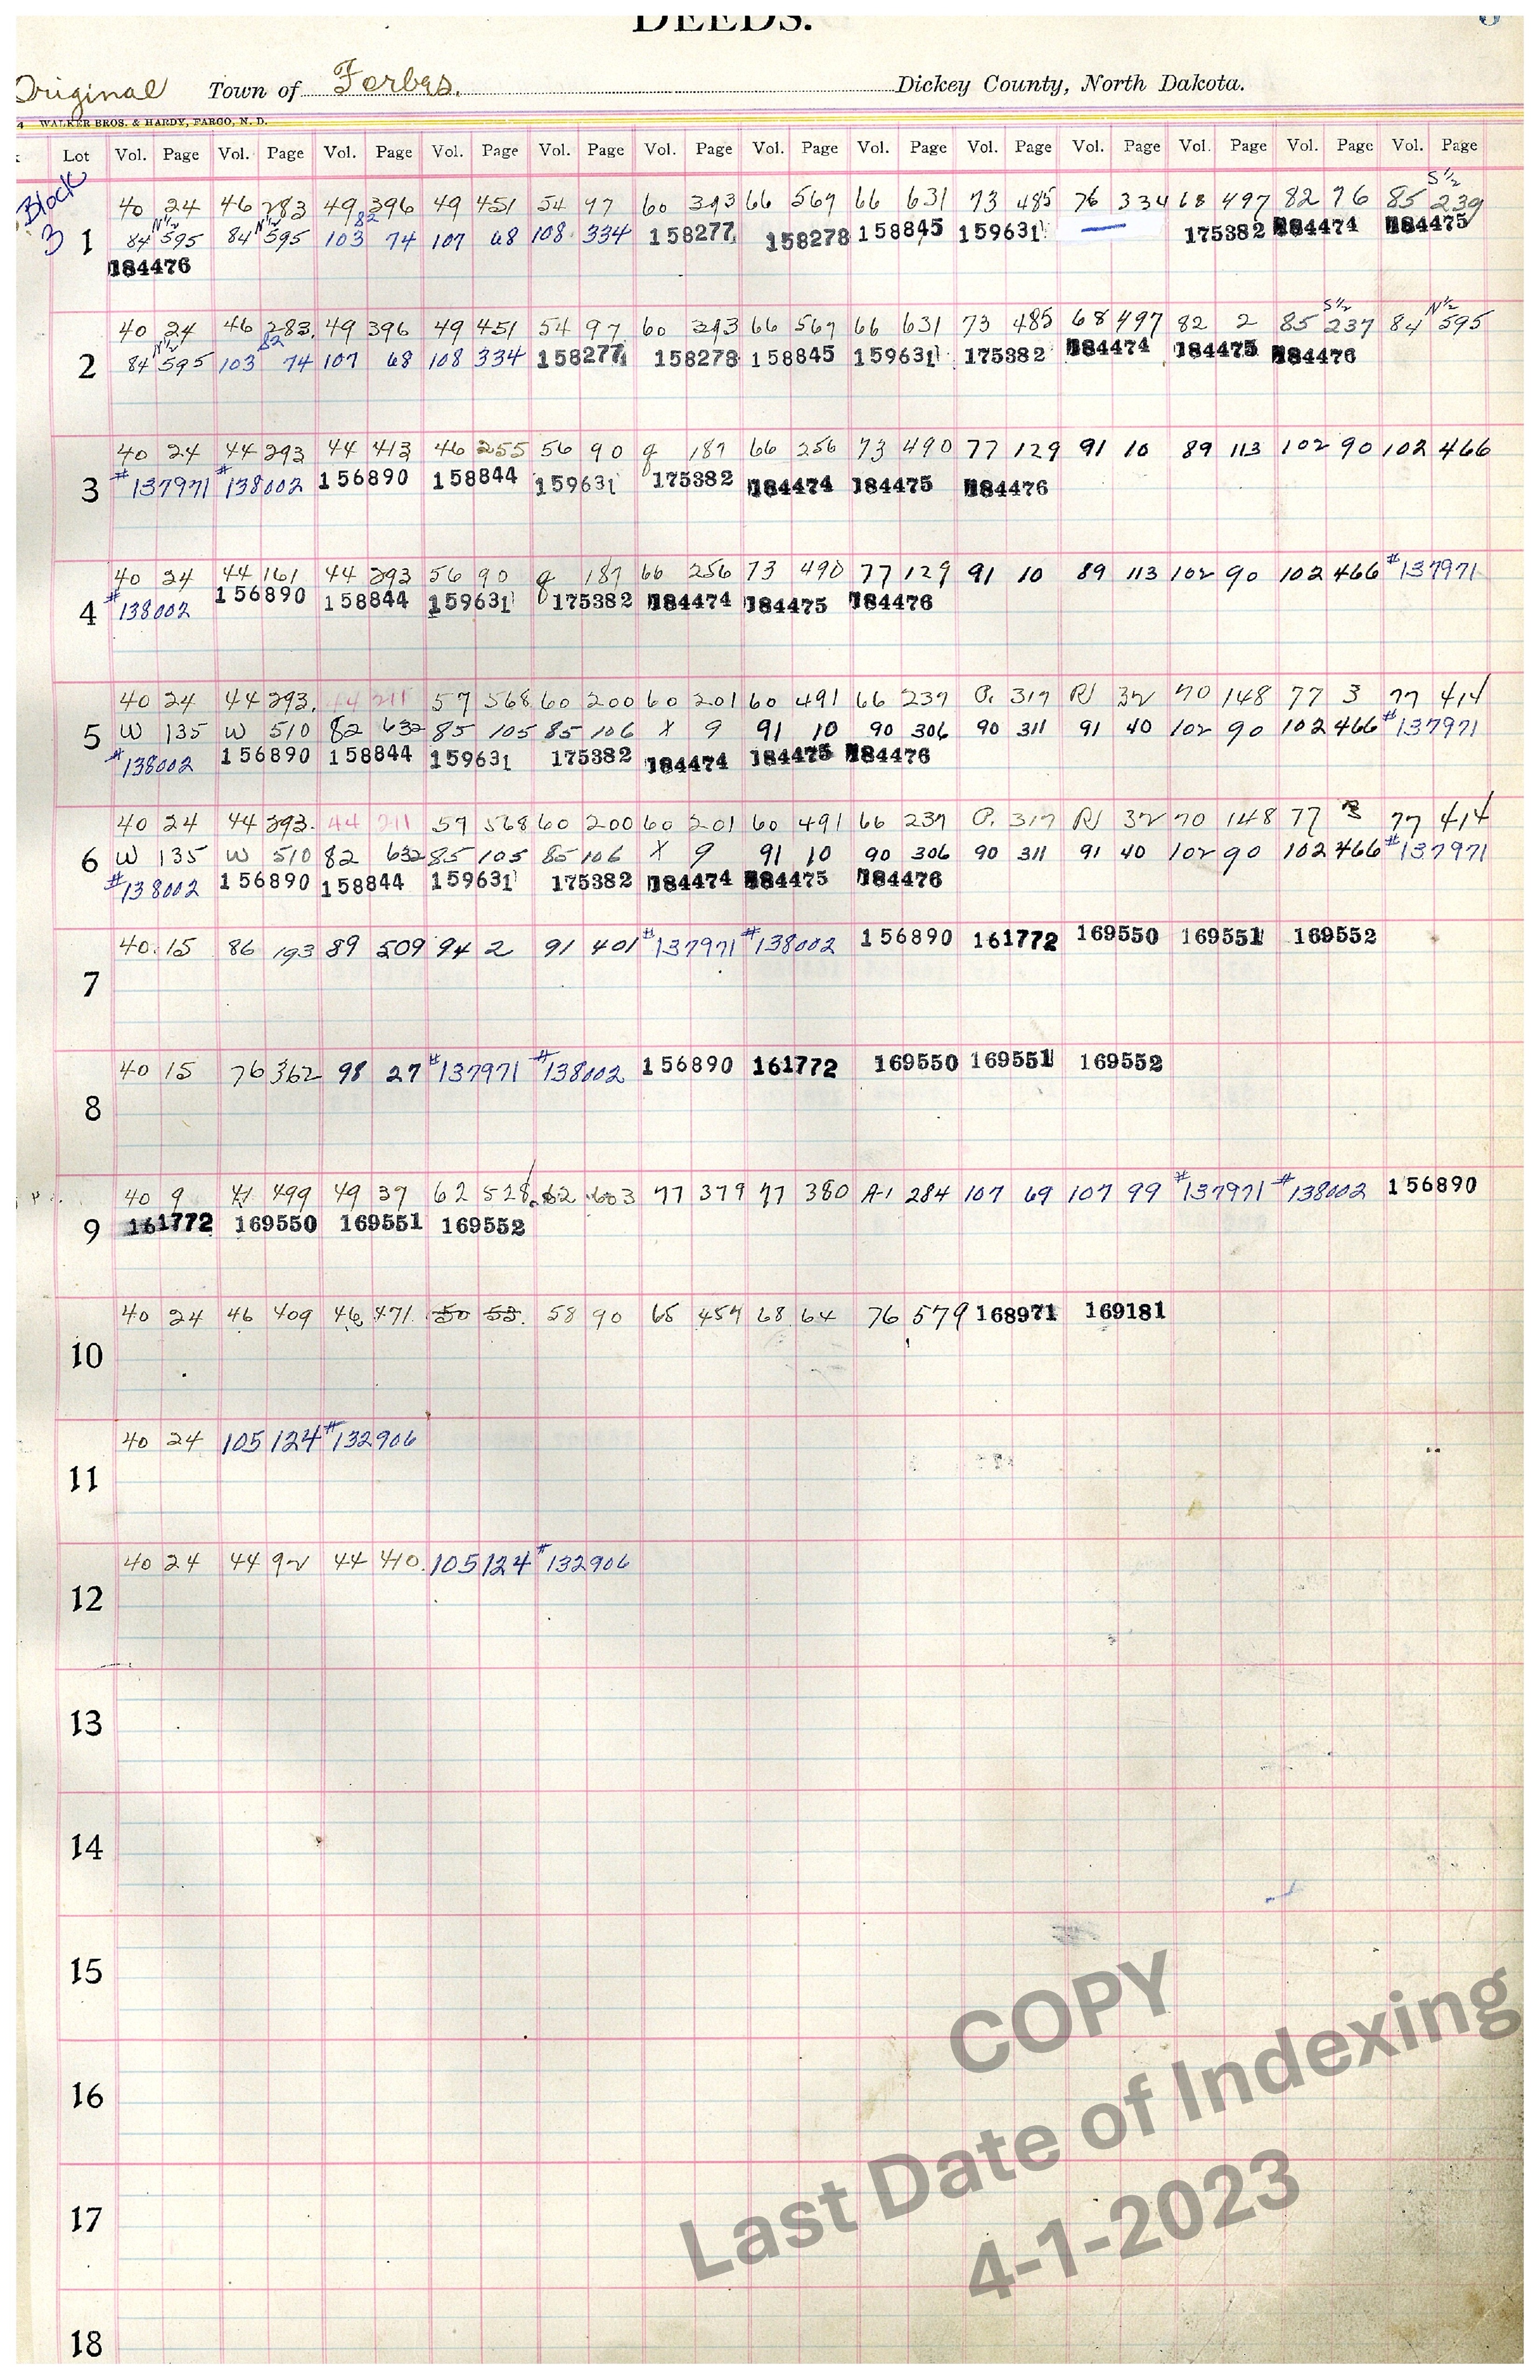 DEEDS.
Original Town of Forbes. Dickey County, North Dakota.
WALKER BROS. & HARDY, FARGO, N. D.
Lot Vol. Page Vol. Page Vol. Page Vol. Page Vol. Page Vol. Page Vol. Page Vol. Page Vol. Page Vol. Page Vol. Page Vol. Page Vol. Page
Block
3
S½
40 24 46 283 49 396 49 451 54 97 60 393 66 567 66 631 73 485 76 334 68 497 82 76 85 239
N½ N½ 82
1 84 595 84 595 103 74 107 68 108 334 158277 158278 158845 159631 — 175382 184474 184475
184476
S½ N½
40 24 46 283. 49 396 49 451 54 97 60 393 66 567 66 631 73 485 68 497 82 2 85 237 84 595
N½ 82
2 84 595 103 74 107 68 108 334 158277 158278 158845 159631 175382 184474 184475 184476
40 24 44 293 44 413 46 255 56 90 g 187 66 256 73 490 77 129 91 10 89 113 102 90 102 466
3 #137971 #138002 156890 158844 159631 175382 184474 184475 184476
40 24 44 161 44 293 56 90 g 187 66 256 73 490 77 129 91 10 89 113 102 90 102 466 #137971
4 #138002 156890 158844 159631 175382 184474 184475 184476
40 24 44 293. 44 211 57 568 60 200 60 201 60 491 66 237 O. 317 R 32 70 148 77 3 77 414
5 W 135 W 510 82 632 85 105 85 106 X 9 91 10 90 306 90 311 91 40 102 90 102 466 #137971
#138002 156890 158844 159631 175382 184474 184475 184476
40 24 44 293. 44 211 57 568 60 200 60 201 60 491 66 237 O. 317 R 32 70 148 77 3 77 414
6 W 135 W 510 82 632 85 105 85 106 X 9 91 10 90 306 90 311 91 40 102 90 102 466 #137971
#138002 156890 158844 159631 175382 184474 184475 184476
40 15 86 193 89 509 94 2 91 401 #137971 #138002 156890 161772 169550 169551 169552
7
40 15 76 362 98 27 #137971 #138002 156890 161772 169550 169551 169552
8
40 9 41 499 49 37 62 528 62 603 77 379 77 380 A-1 284 107 69 107 99 #137971 #138002 156890
9 161772 169550 169551 169552
40 24 46 409 46 471 50 53. 58 90 65 457 68 64 76 579 168971 169181
10
40 24 105 124 #132906
11
40 24 44 92 44 410. 105 124 #132906
12
13
14
15
16
17
18
COPY
Last Date of Indexing
4-1-2023